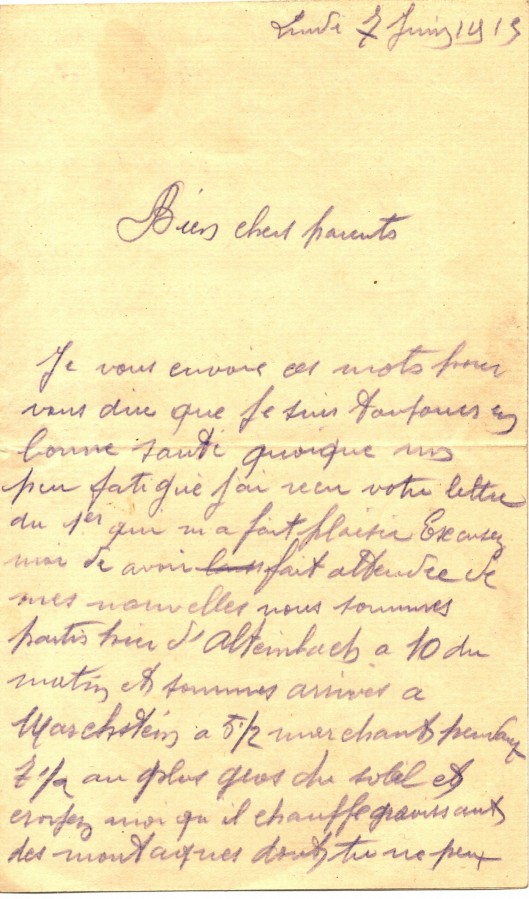 Lundi 7 Juin 1915
Bien chers parents
Je vous envoie ces mots pour
vous dire que je suis toujours en
bonne santé quoique un
peu fatigué j'ai recu votre lettre
du 1er qui m'a fait plaisir Excusez
moi de avoir fait attendre de
mes nouvelles nous sommes
partis hier d'Altembach a 10 du
matin et sommes arrivés a
Marchstein a 5 1/2 marchant pendant
7 1/2 au plus gros du soleil et
croyez moi qu il chauffe gravissant
des montagnes dont tu ne peux